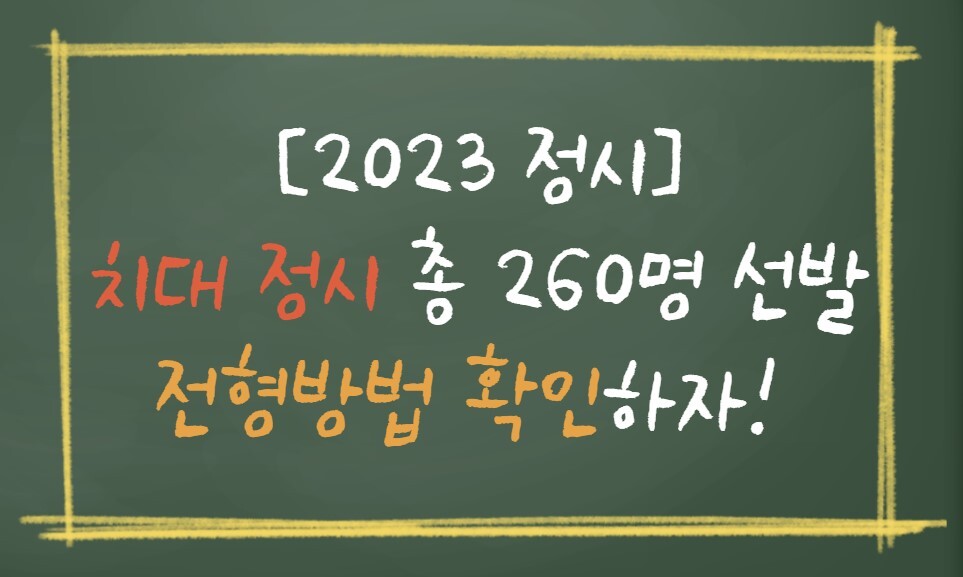 [2023 정시]
치대 정시 총 260명 선발
전형방법 확인하자!